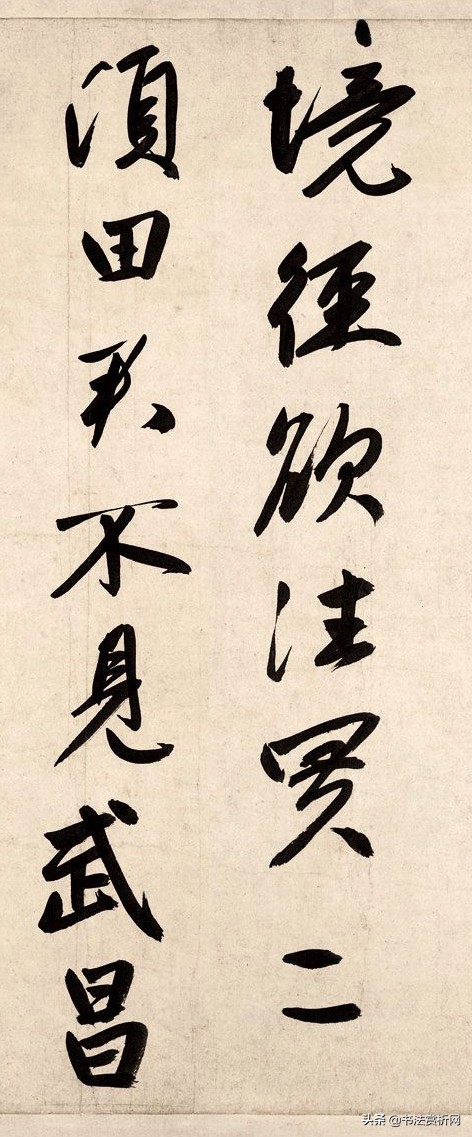 境徑欲往買二
頃田君不見武昌
头条 @书法赏析网